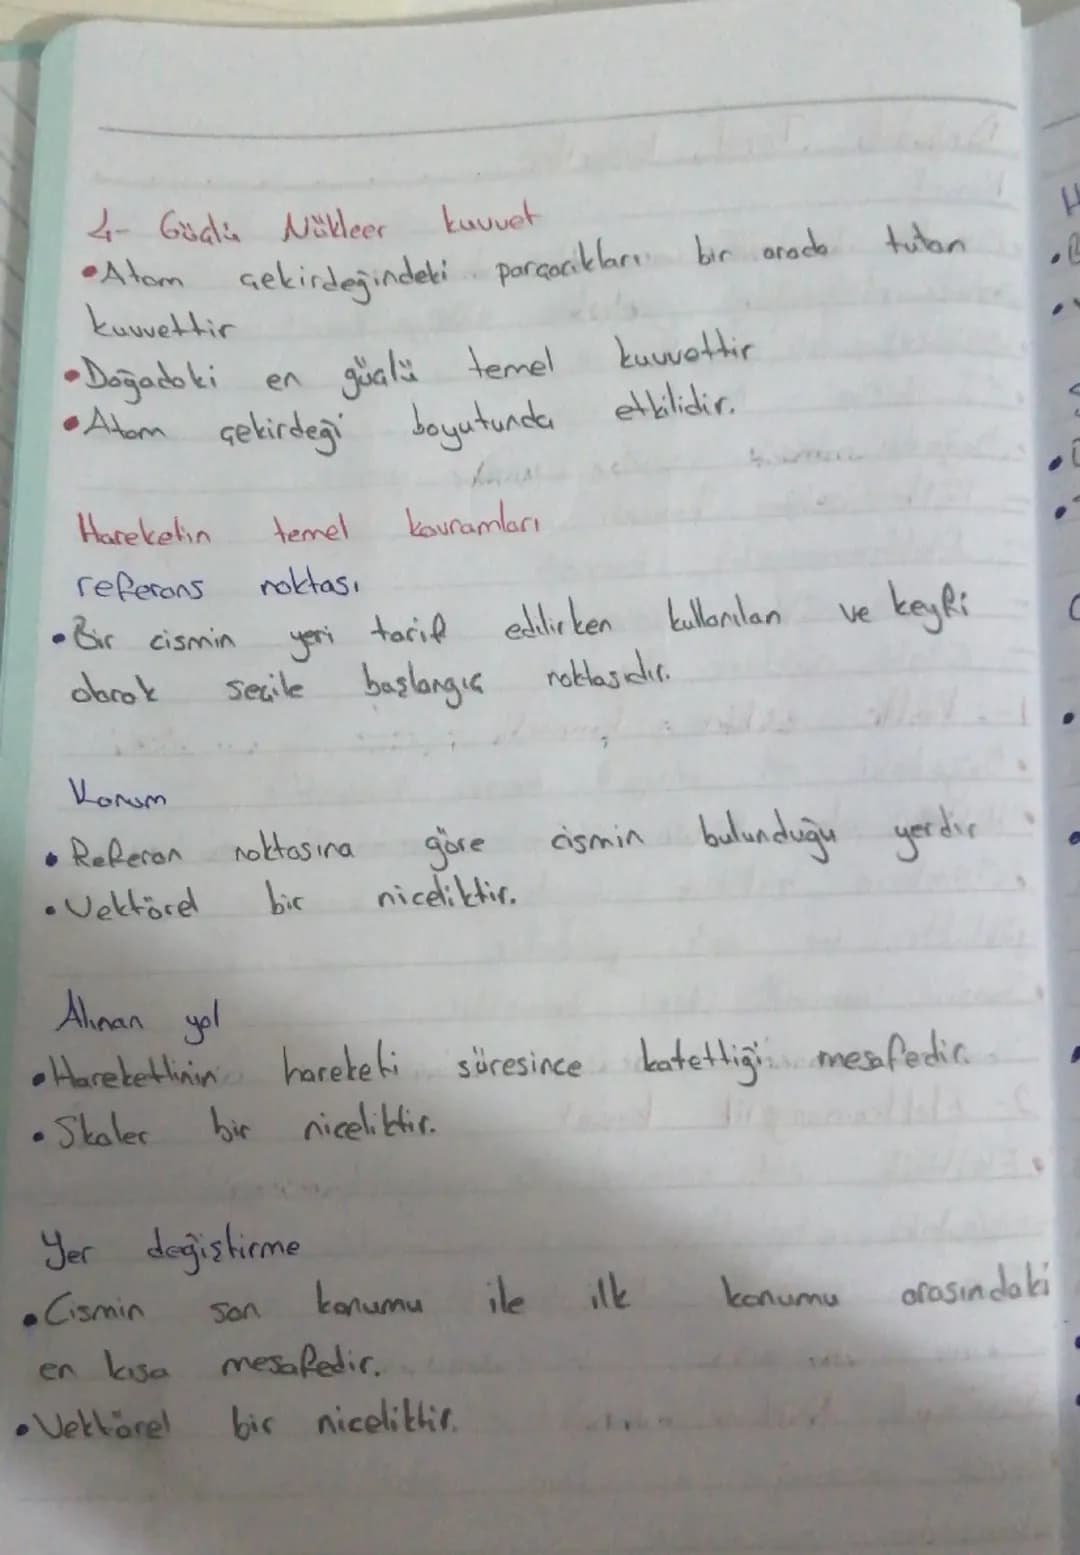 4- Güçlü Nükleer kuvvet
•Atom çekirdeğindeki parçacıkları bir arada tutan
kuvvettir
•Doğadaki en güçlü temel kuvvettir
•Atom çekirdeği boyutunda etkilidir.
Hareketin temel kavramları
referans noktası
•Bir cismin yeri tarif edilirken kullanılan ve keyfi
olarak seçile başlangıç noktasıdır.
Konum
•Referan noktasına göre cismin bulunduğu yerdir
•Vektörel bir niceliktir.
Alınan yol
•Hareketlinin hareketi süresince katettiği mesafedir.
•Skaler bir niceliktir.
Yer değiştirme
•Cismin son konumu ile ilk konumu arasındaki
en kısa mesafedir.
•Vektörel bir niceliktir.